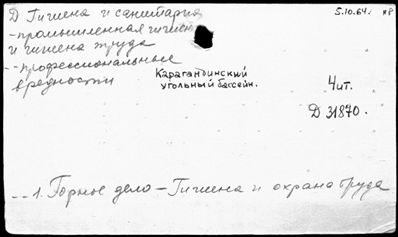 Д Гигиена и санитария
5.10.64. КР
- промышленная гигиен
и гигиена труда
-- профессиональные
вредности
Карагандинский
угольный бассейн.
Чит.
Д 31870.
1. Горное дело - Гигиена и охрана труда